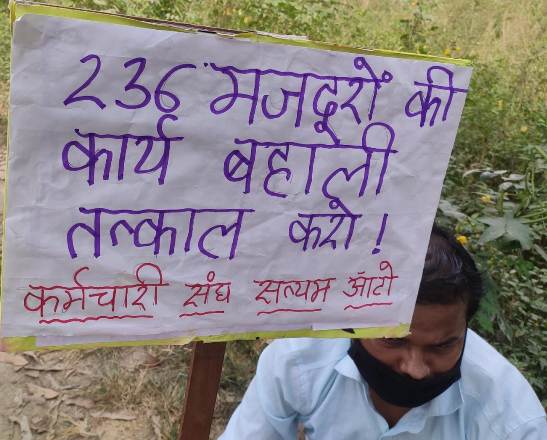 236 मजदूरों की
कार्य बहाली
तत्काल करो!
कर्मचारी संघ सत्यम ऑटो